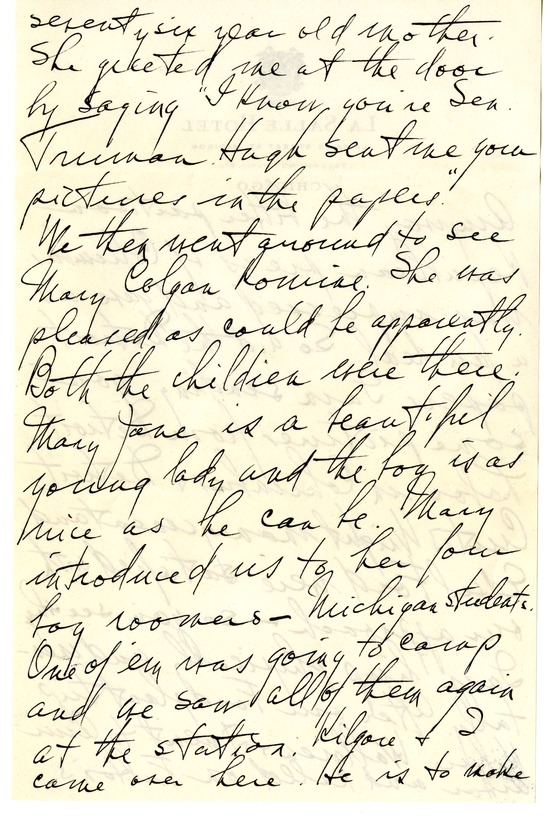 seventysix year old mother.
She greeted me at the door
by saying "I know you're Sen.
Truman. Hugh sent me your
pictures in the papers."
We then went around to see
Mary Colgan Romine. She was
pleased as could be apparently.
Both the children were there.
Mary Jane is a beautiful
young lady and the boy is as
nice as he can be. Mary
introduced us to her four
boy roomers - Michigan students.
One of em was going to camp
and we saw all of them again
at the station. Kilgore & I
came over here. He is to make